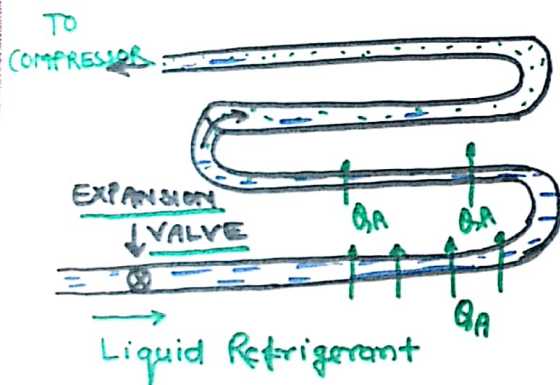 TO
COMPRESSOR
EXPANSION
VALVE
QA QA
QA
Liquid Refrigerant